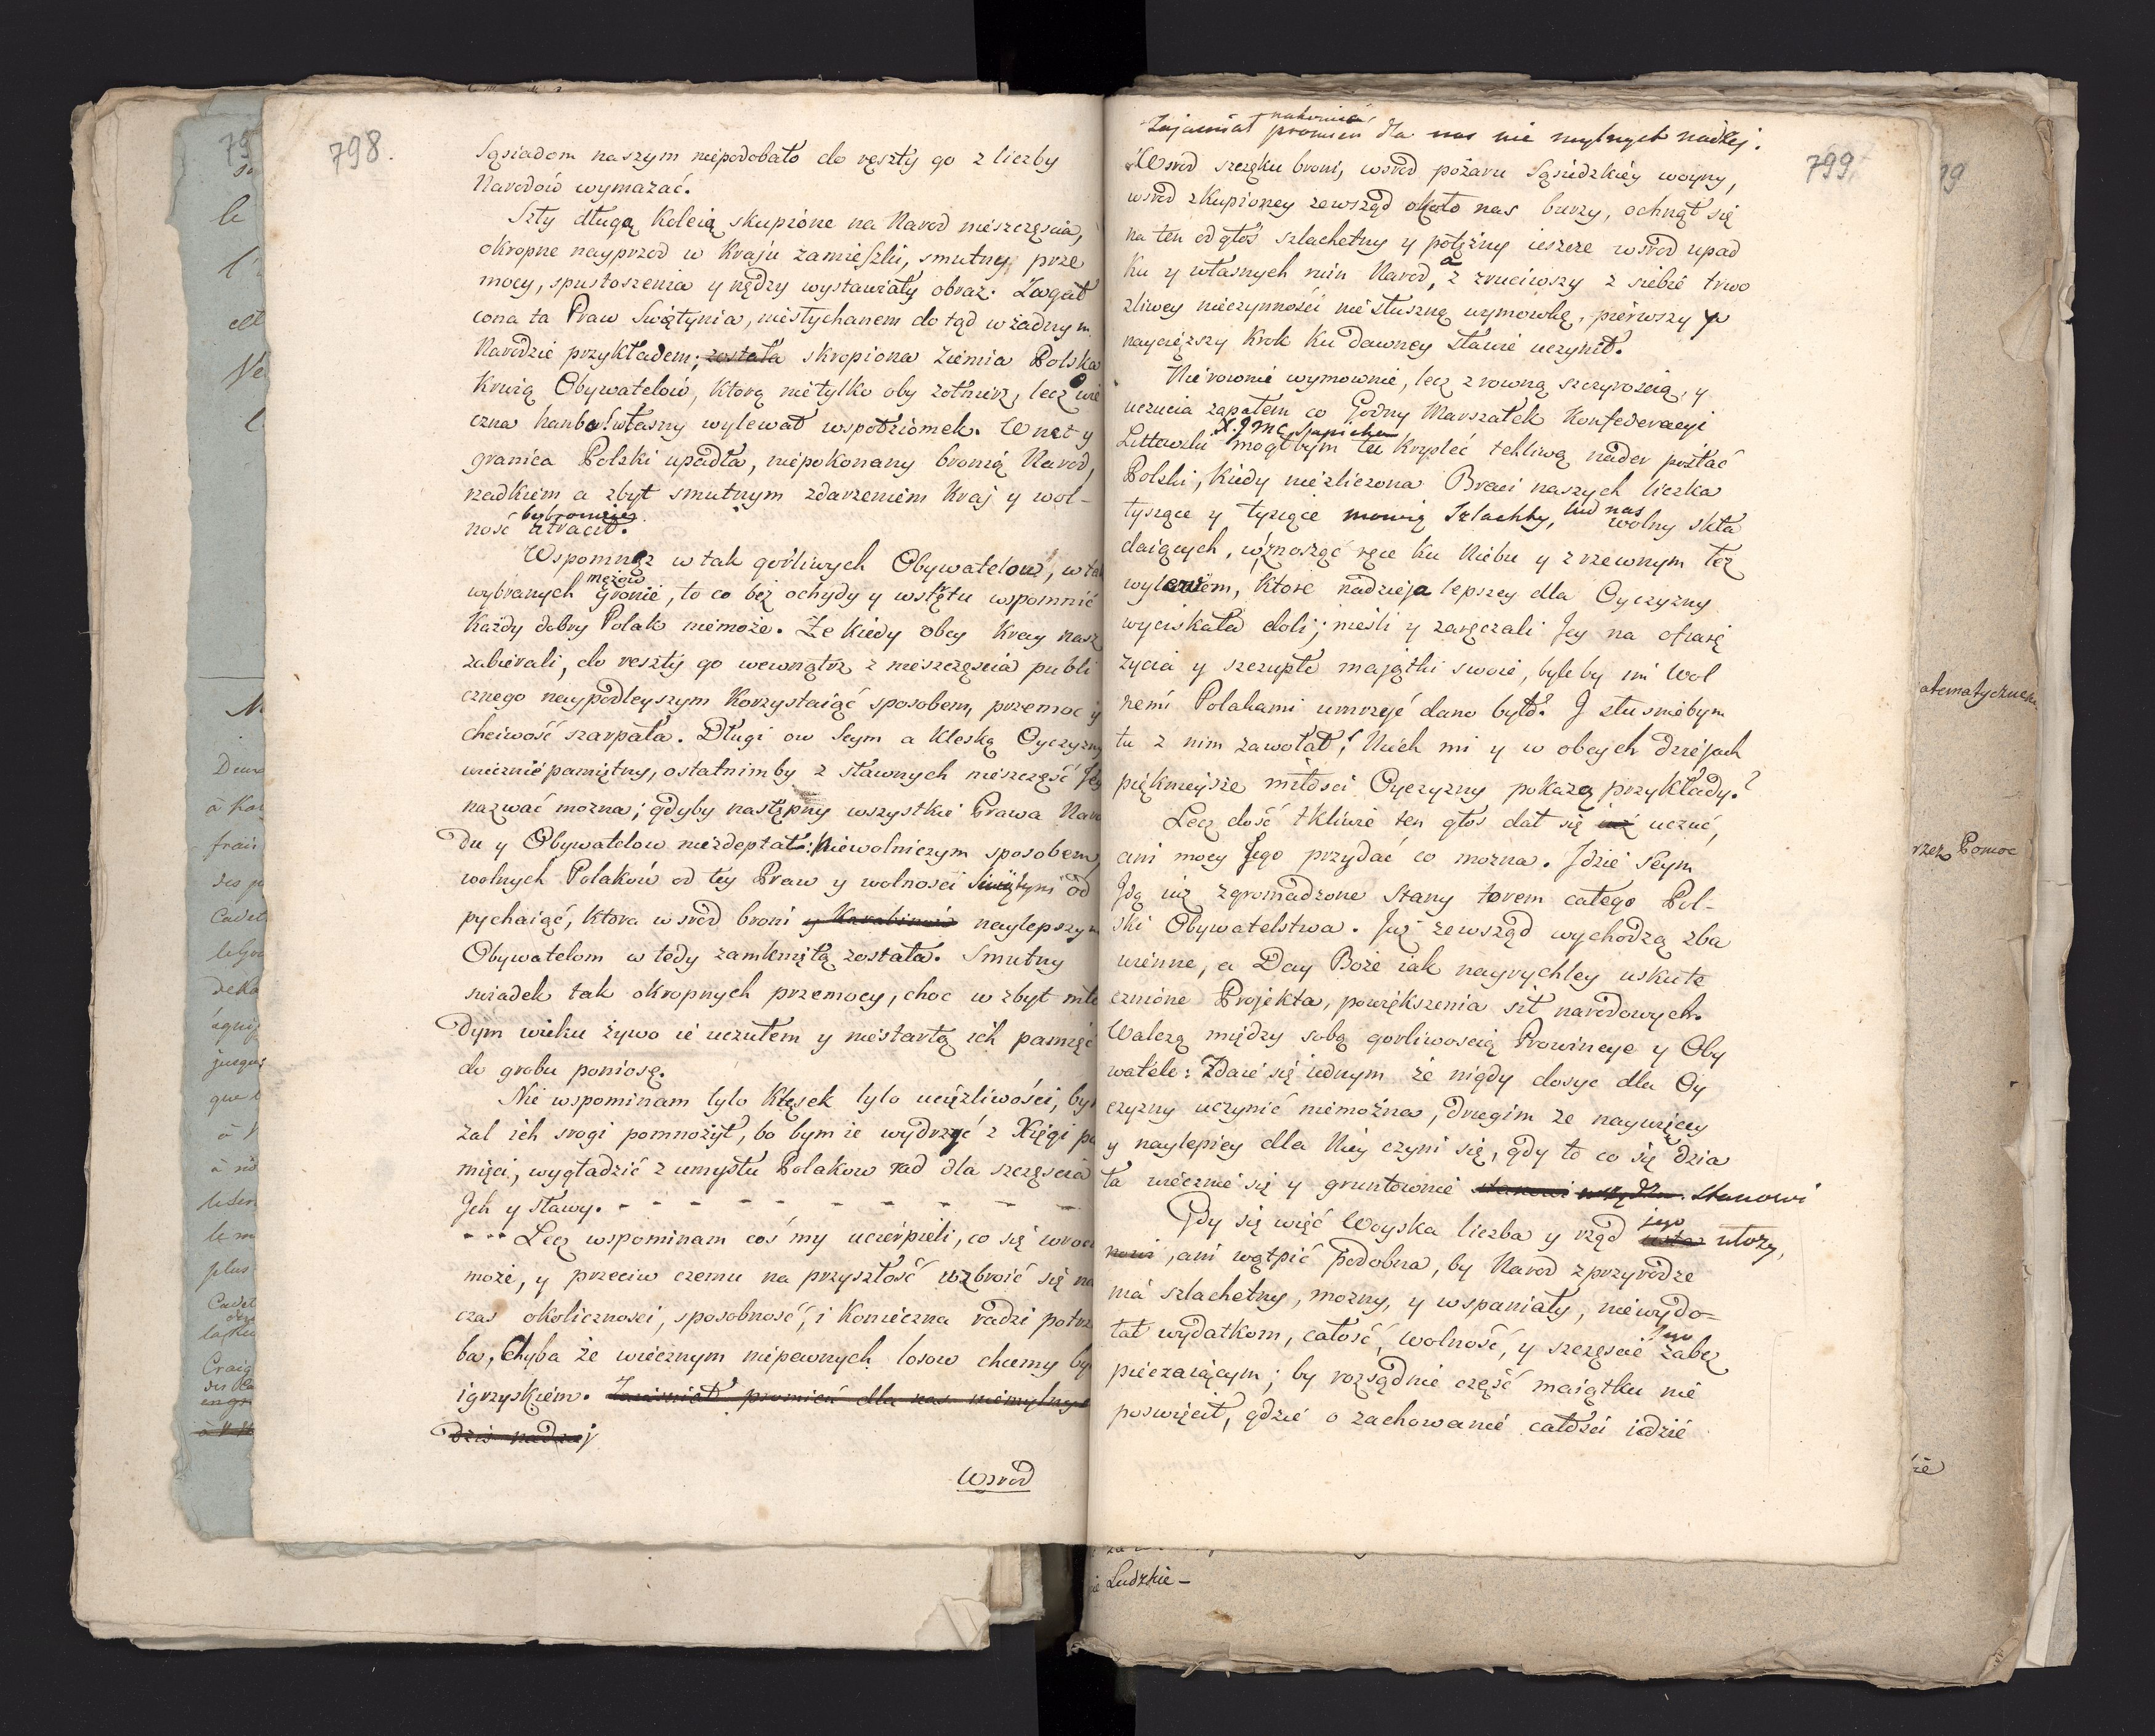 798.
Sąsiadom naszym niepodobało do reszty go z liczby
Narodów wymazać.
Szły długą koleią skupione na Narod nieszczęscia,
okropne nayprzod w Kraju zamieszki, smutny prze
mocy, spustoszenia y nędzy wystawiały obraz. Zwał
cona ta Praw Swiątynia, niesłychanem do tąd w żadnym
Narodzie przykładem; została skropiona Ziemia Polska
Krwią Obywatelów, ktorą nietylko oby żołnierz, lecz wie
czna hanbo! własny wylewał wspołziomek. Wnet y
granica Polski upadła, niepokonany bronią Narod,
rzadkiem a zbyt smutnym zdarzeniem Kraj y wol-
ność utracił.
Wspomnęz w tak gorliwych Obywatelow, w tak
mężow
wybranych gronie, to co bez ochydy y wstrętu wspomnić
Każdy dobry Polak niemoże. Ze kiedy obcy Kray nasz
zabierali, do reszty go wewnątrz z nieszczęscia publi
cznego naypodleyszym korzystaiąć sposobem, przemoc y
chciwość szarpała. Długi ow Seym a kleską Oyczyzny
wiecznie pamiętny, ostatnimby z sławnych nieszczęść Jey
nazwać można; gdyby następny wszystkie Prawa Naro
du y Obywatelow niezdeptał: Niewolniczym sposobem,
wolnych Polaków od tey Praw y wolnosci Swiątyni od
pychaiąć, ktora wsrod broni y Karabinów naylepszym
Obywatelom wtedy zamknięta została. Smutny
swiadek tak okropnych przemocy, choc w zbyt mło
dym wieku żywo ie uczułem y niestartą ich pamięć
do grobu poniosę.
Nie wspominam tylo Klęsek tylo uciążliwości, bym
żal ich srogi pomnożył, bo bym ie wydrzyć z Xięgi pa
mięci, wygładzić z umysłu Polakow rad dla szczęscia
Jch y sławy. - - - - - - - - -
- - - Lecz wspominam coś my ucierpieli, co się wroci
może, y przeciw czemu na przyszłość uzbroić się na
czas okoliczności, sposobność, i konieczna radzi potrze
ba, Chyba że wiecznym niepewnych losow chcemy by
igrzyskiem. Zaiaśniał promień dla nas niemylnych
dziś nadziej
Wsrod
799.
nakoniec
Zajasniał promien dla nas nie mylnych nadziej.
Wsrod szczęku broni, wsrod pożaru Sąsiedzkiéy woyny,
wsrod skupioney zewsząd około nas burzy, ocknął się
na ten odgłos szlachetny y potężny ieszcze wsrod upad
ku y własnych ruin Narod, a z zruciwszy z siebie trwo
zliwey nieczynności niesłuszną wymowkę, pierwszy y
naycięższy Krok ku dawney sławie uczynił.
Nierownie wymownie, lecz z rowną szczyroscią, y
uczucia zapałem co Godny Marszałek Konfederacyi
X. JMC Sapieha
Littewski mogłbym tu kryslić tkliwą nader postać
Polski, kiedy niezliczona Braci naszych liczka
tysące y tysące mowię Szlachty, lud nas wolny skła
daiących, wznosząc ręce ku Niebu y z rzewnym łez
wylaniem, ktore nadzieja lepszey dla Oyczyzny
wyciskała doli; niesli y zaręczali Jey na ofiarę
życia y szczupłe majątki swoie, byleby im Wol
nemi Polakami umrzeć dano było. J słusniebym
tu z nim zawołał! Niech mi y w obcych dziejach
piękniejsze miłosci Oyczyzny pokażą przykłady?
Lecz dość tkliwie ten głos dał się iuż uczuć,
ani mocy Jego przydać co można. Jdzie Seym
Jdą iuż zgromadzone Stany torem całego Pol-
ski Obywatelstwa. Już zewsząd wychodzą zba
wienne, a Day Boże iak nayrychley uskute
cznione Projekta, powiększenia sił narodowych.
Walczą między sobą gorliwoscią Prowincye y Oby
watéle: Zdaie się iednym że nigdy dosyc dla Oy
czyzny uczynić niemożna, drugim że naywięcey
y naylepiey dla Niey czyni się, gdy to co się dzia
ła wiecznie się y gruntownie stanowi urządza. Stanowi
Gdy się więć Woyska liczba y rząd jego ułoży,
, ani wątpić podobna, by Narod z przyrodze
nia szlachetny, możny, y wspaniały, niewydo-
łał wydatkom, całość, wolność, y szczęście Jego zabez
pieczaiącym; by rozsądnie część maiątku nie
poswięcił, gdzie o zachowanie całości idzie
atematyczne
rzez Pomoc
Ludzkie -